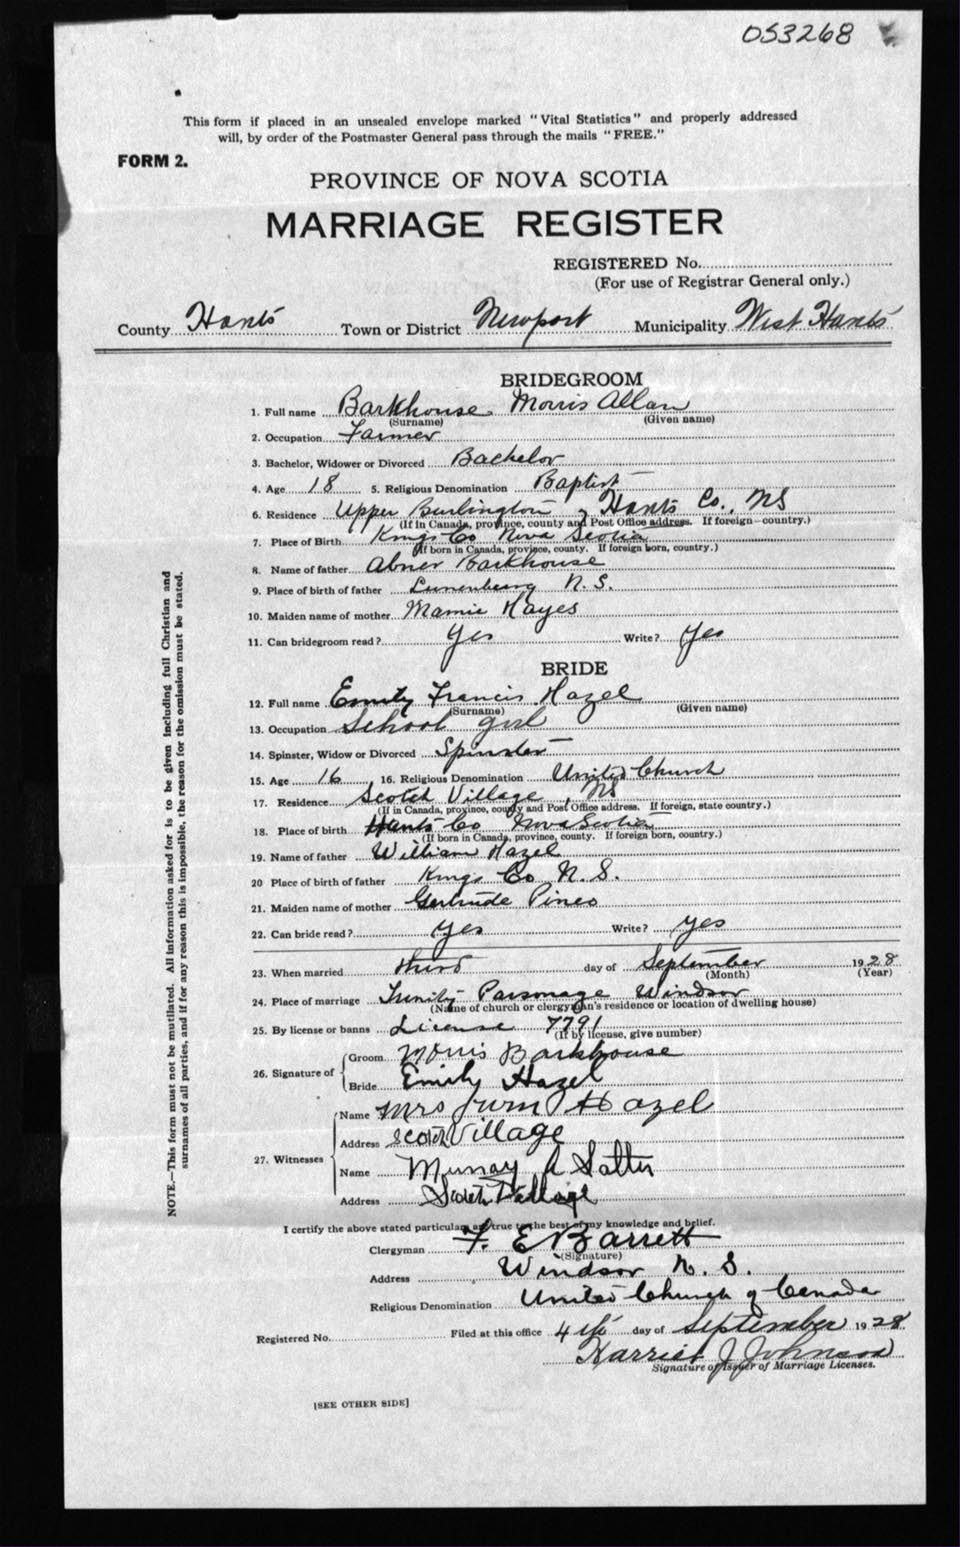 053268
This form if placed in an unsealed envelope marked "Vital Statistics" and properly addressed
will, by order of the Postmaster General pass through the mails "FREE."
FORM 2.
PROVINCE OF NOVA SCOTIA
MARRIAGE REGISTER
REGISTERED No.
(For use of Registrar General only.)
County Hants Town or District Newport Municipality West Hants
BRIDEGROOM
1. Full name Barkhouse Morris Allan
(Surname) (Given name)
2. Occupation Farmer
3. Bachelor, Widower or Divorced Bachelor
4. Age 18 5. Religious Denomination Baptist
6. Residence Upper Burlington, Hants Co., NS
(If in Canada, province, county and Post Office address. If foreign—country.)
7. Place of Birth Kings Co Nova Scotia
(If born in Canada, province, county. If foreign born, country.)
8. Name of father Abner Barkhouse
9. Place of birth of father Lunenburg N.S.
10. Maiden name of mother Mamie Hayes
11. Can bridegroom read? Yes Write? Yes
BRIDE
12. Full name Emily Francis Hazel
(Surname) (Given name)
13. Occupation School girl
14. Spinster, Widow or Divorced Spinster
15. Age 16 16. Religious Denomination United Church
17. Residence Scotch Village, NS
(If in Canada, province, county and Post Office address. If foreign, state country.)
18. Place of birth Hants Co Nova Scotia
(If born in Canada, province, county. If foreign born, country.)
19. Name of father William Hazel
20 Place of birth of father Kings Co N.S.
21. Maiden name of mother Gertrude Pineo
22. Can bride read? Yes Write? Yes
23. When married third day of September 1928
(Month) (Year)
24. Place of marriage Trinity Parsonage Windsor
(Name of church or clergyman's residence or location of dwelling house)
25. By license or banns License 7791
(If by license, give number)
26. Signature of
Groom Morris Barkhouse
Bride Emily Hazel
27. Witnesses
Name Mrs Hazel
Address Scotch Village
Name Murray A Salter
Address Scotch Village
I certify the above stated particulars are true to the best of my knowledge and belief.
Clergyman F. E Barrett
(Signature)
Address Windsor N. S.
Religious Denomination United Church of Canada
Registered No. Filed at this office 4th day of September 1928
Harriet J Johnson
Signature of Issuer of Marriage Licenses.
[SEE OTHER SIDE]
NOTE.—This form must not be mutilated. All information asked for is to be given including full Christian and
surnames of all parties, and if for any reason this is impossible, the reason for the omission must be stated.